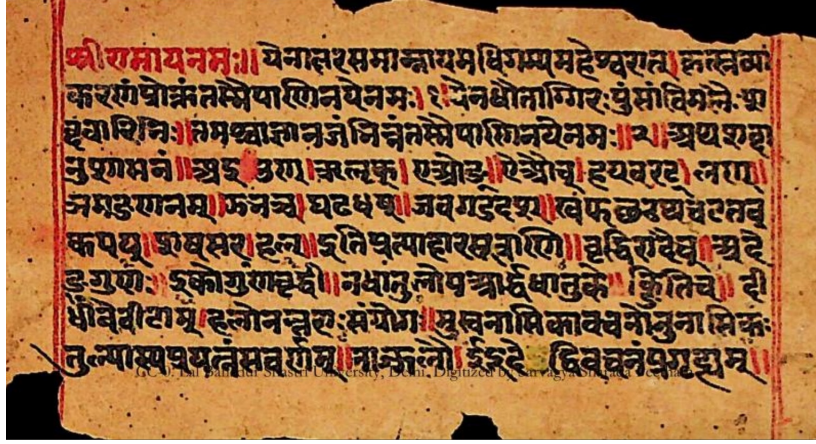 श्रीरामायनमः॥ येनाक्षरसमाम्नायमधिगम्यमहेश्वरात्। कृत्स्नंव्या
करणंप्रोक्तंतस्मैपाणिनयेनमः।१।येनधौताग्गिरःपुंसांविमलैःशा
ब्दवारिभिः।तमश्चाज्ञानजंभिन्नंतस्मैपाणिनयेनमः॥२॥अथशब्दा
नुशासनं॥अइउण्।ऋलृक्।एओङ्॥ऐऔच्।हयवरट्।लण्॥
ञमङणनम्।झभञ्।घढधष्॥जबगडदश्॥खफछठथचटतव्
कपय्।शषसर्।हल्॥इतिप्रत्याहारसूत्राणि॥वृद्धिरादैच्॥अदे
ङ्गुणः॥इकोगुणवृद्धी॥नधातुलोपआर्द्धधातुके॥क्ङितिच॥दी
धीवेवीटाम्।हलोनन्तराःसंयोगः॥मुखनासिकावचनोनुनासिकः
तुल्यास्यप्रयत्नंसवर्णम्॥नाज्झलौ।ईदूदे द्विवचनंप्रगृह्यम्॥
CC-0. Lal Bahadur Shastri University, Delhi. Digitized by Sarvagya Sharada Peetham